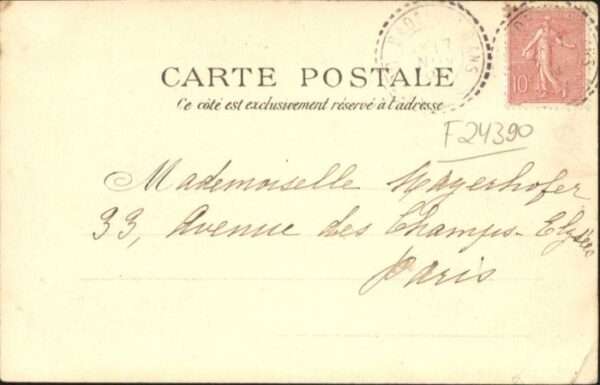 17
CARTE POSTALE
10
Ce côté est exclusivement réservé à l'adresse
F24390
Mademoiselle Mayerhofer
33, Avenue des Champs-Elysées
Paris